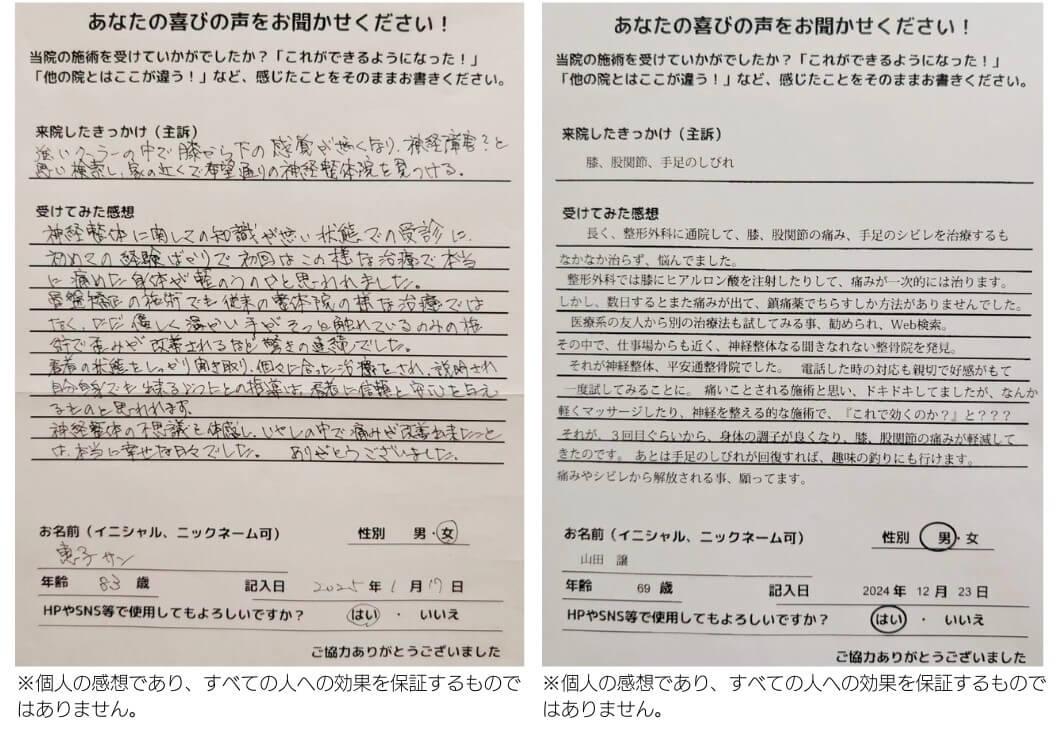 あなたの喜びの声をお聞かせください！
当院の施術を受けていかがでしたか？「これができるようになった！」
「他の院とはここが違う！」など、感じたことをそのままお書きください。
来院したきっかけ（主訴）
強いクーラーの中で膝から下の感覚が無くなり、神経障害？と
思い検索し、家の近くで希望通りの神経整体院を見つける。
受けてみた感想
神経整体に関しての知識が無い状態での受診に、
初めての経験ばかりで初回はこの様な治療で本当
に痛めた身体が整うのかと思われました。
骨盤矯正の施術でも従来の整体院の様な治療では
なく、ただ優しく温かい手がそっと触れているのみの施
術で歪みが改善されるなど驚きの連続でした。
患者の状態をしっかり聞き取り、個々に合った治療をされ、説明され
自分自身でも出来るどつことの指導は、患者に信頼と安心を与え
るものと思われます。
神経整体の不思議を体感し、いやしの中で痛みが改善出来たこと
は、本当に幸せな日々でした。 ありがとうございました。
お名前（イニシャル、ニックネーム可） 性別 男・女
恵子サン
年齢 83 歳 記入日 2025 年 1 月 17 日
HPやSNS等で使用してもよろしいですか？ はい ・ いいえ
ご協力ありがとうございました
※個人の感想であり、すべての人への効果を保証するもので
はありません。
あなたの喜びの声をお聞かせください！
当院の施術を受けていかがでしたか？「これができるようになった！」
「他の院とはここが違う！」など、感じたことをそのままお書きください。
来院したきっかけ（主訴）
膝、股関節、手足のしびれ
受けてみた感想
長く、整形外科に通院して、膝、股関節の痛み、手足のシビレを治療するも
なかなか治らず、悩んでました。
整形外科では膝にヒアルロン酸を注射したりして、痛みが一次的には治ります。
しかし、数日するとまた痛みが出て、鎮痛薬でちらすしか方法がありませんでした。
医療系の友人から別の治療法も試してみる事、勧められ、Web検索。
その中で、仕事場からも近く、神経整体なる聞きなれない整骨院を発見。
それが神経整体、平安通整骨院でした。 電話した時の対応も親切で好感がもて
一度試してみることに。 痛いことされる施術と思い、ドキドキしてましたが、なんか
軽くマッサージしたり、神経を整える的な施術で、『これで効くのか？』と？？？
それが、３回目ぐらいから、身体の調子が良くなり、膝、股関節の痛みが軽減して
きたのです。 あとは手足のしびれが回復すれば、趣味の釣りにも行けます。
痛みやシビレから解放される事、願ってます。
お名前（イニシャル、ニックネーム可） 性別 男・女
山田 譲
年齢 69 歳 記入日 2024 年 12 月 23 日
HPやSNS等で使用してもよろしいですか？ はい ・ いいえ
ご協力ありがとうございました
※個人の感想であり、すべての人への効果を保証するもので
はありません。